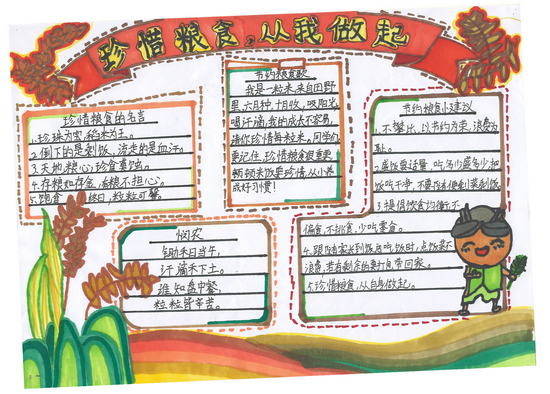 珍惜粮食,从我做起
珍惜粮食的名言
1.珍珠为宝,稻米为王。
2.倒下的是剩饭,流走的是血汗。
3.天地粮心,珍食莫蚀。
4.存粮如存金,有粮不担心。
5.饱食 终日,粒粒可餐。
节约粮食歌
我是一粒米,来自田野
里,六月种,十月收,吸阳光,
喝汗滴,我的成长不容易,
请你珍惜每粒米。同学们
要记住,珍惜粮食很重要
顿顿米饭要珍惜,从小养
成好习惯!
节约粮食小建议
1.不攀比,以节约为荣,浪费为
耻。
2.盛饭要适量,吃多少盛多少把
饭吃干净,不要
3.提倡饮食均衡不
偏食,不挑食,少吃零食。
4.跟随家长到饭店吃饭时,点饭菜不
浪费,若有剩下的要打包带回家。
5.珍惜粮食,从自身做起。
悯农
锄禾日当午,
汗滴禾下土。
谁知盘中餐,
粒粒皆辛苦。